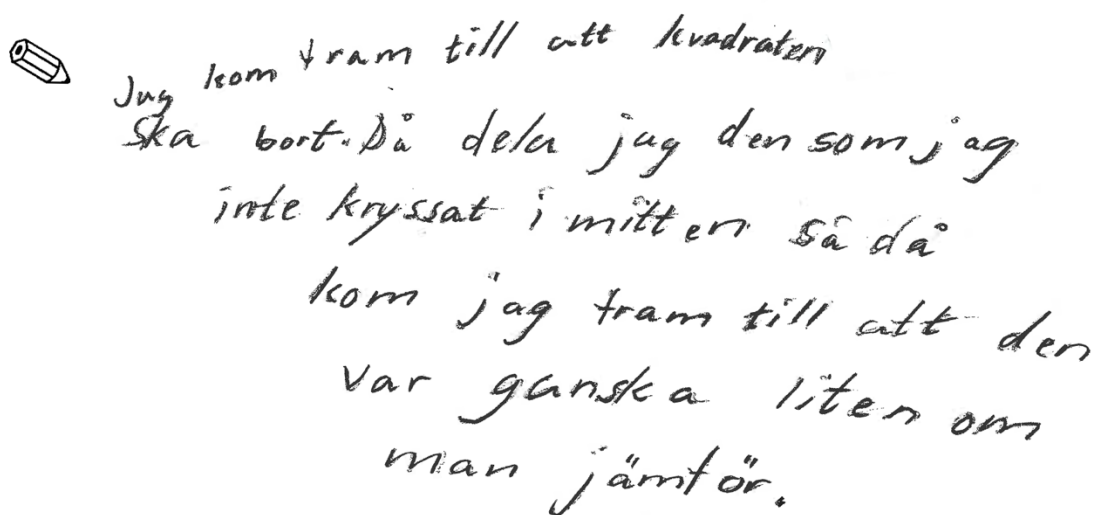 Jag kom fram till att kvadraten
ska bort. Då dela jag den som jag
inte kryssat i mitten så då
kom jag fram till att den
var ganska liten om
man jämför.